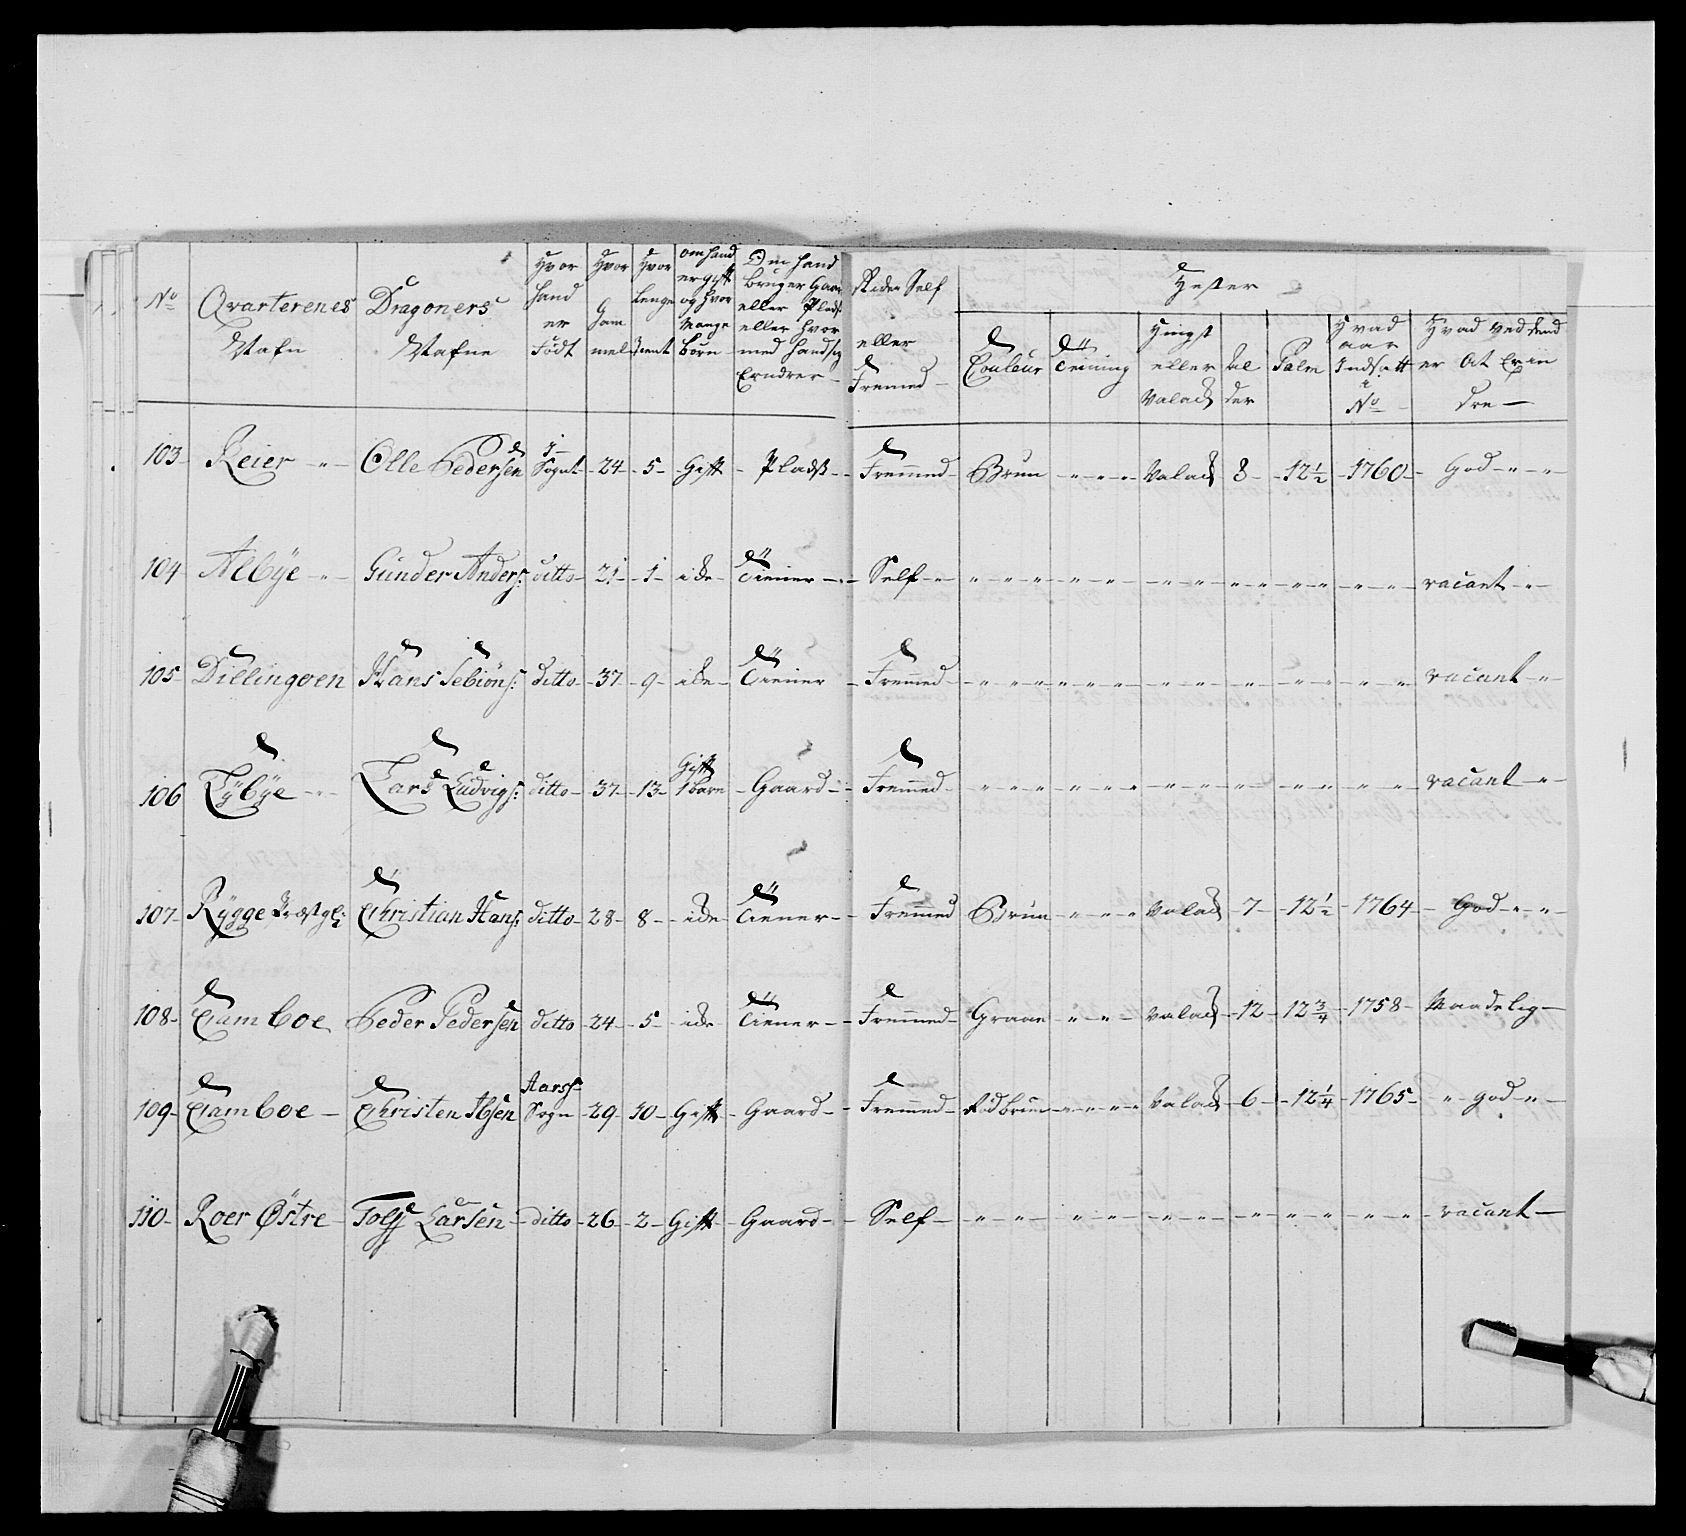 No Qvarterenes Nafn Dragoners Nafne Hvor hand er Födt Hvor Gammel Hvor lenge tient Om hand er gift og hvor mange Börn Om hand bruger Gaard eller Plads eller hvor med hand sig Ernærer Rider Self eller Fremmed Hester
Couleur Teining Hingst eller Valack Alder Palm Hvad aar Indsatt No Hvad ved dend er At Erindre
103 Reier Olle Pedersen i Sognet 24 5 Gift Pladß Fremmed Brun Valack 8 12 1/2 1760 God
104 Albÿe Gunder Anders: ditto 21 1 icke Tiener Self vacant
105 Dillingöen Hans Sebiöns: ditto 37 9 icke Tiener Fremmed vacant
106 Tÿbÿe Lars Ludvigs: ditto 37 13 Gift 1 barn Gaard Fremmed vacant
107 Rÿgge Præstgl: Christian Hans: ditto 28 8 icke Tiener Fremmed Brun Valack 7 12 1/2 1764 God
108 Camboe Peder Pedersen ditto 24 5 icke Tiener Fremmed Graae Valack 12 12 3/4 1758 Maadelig
109 Camboe Christen Ibsen Aars Sogn 29 10 Gift Gaard Fremmed Rødbrun Valack 6 12 1/4 1765 god
110 Roer Östre Larsen ditto 26 2 Gift Gaard Self vacant